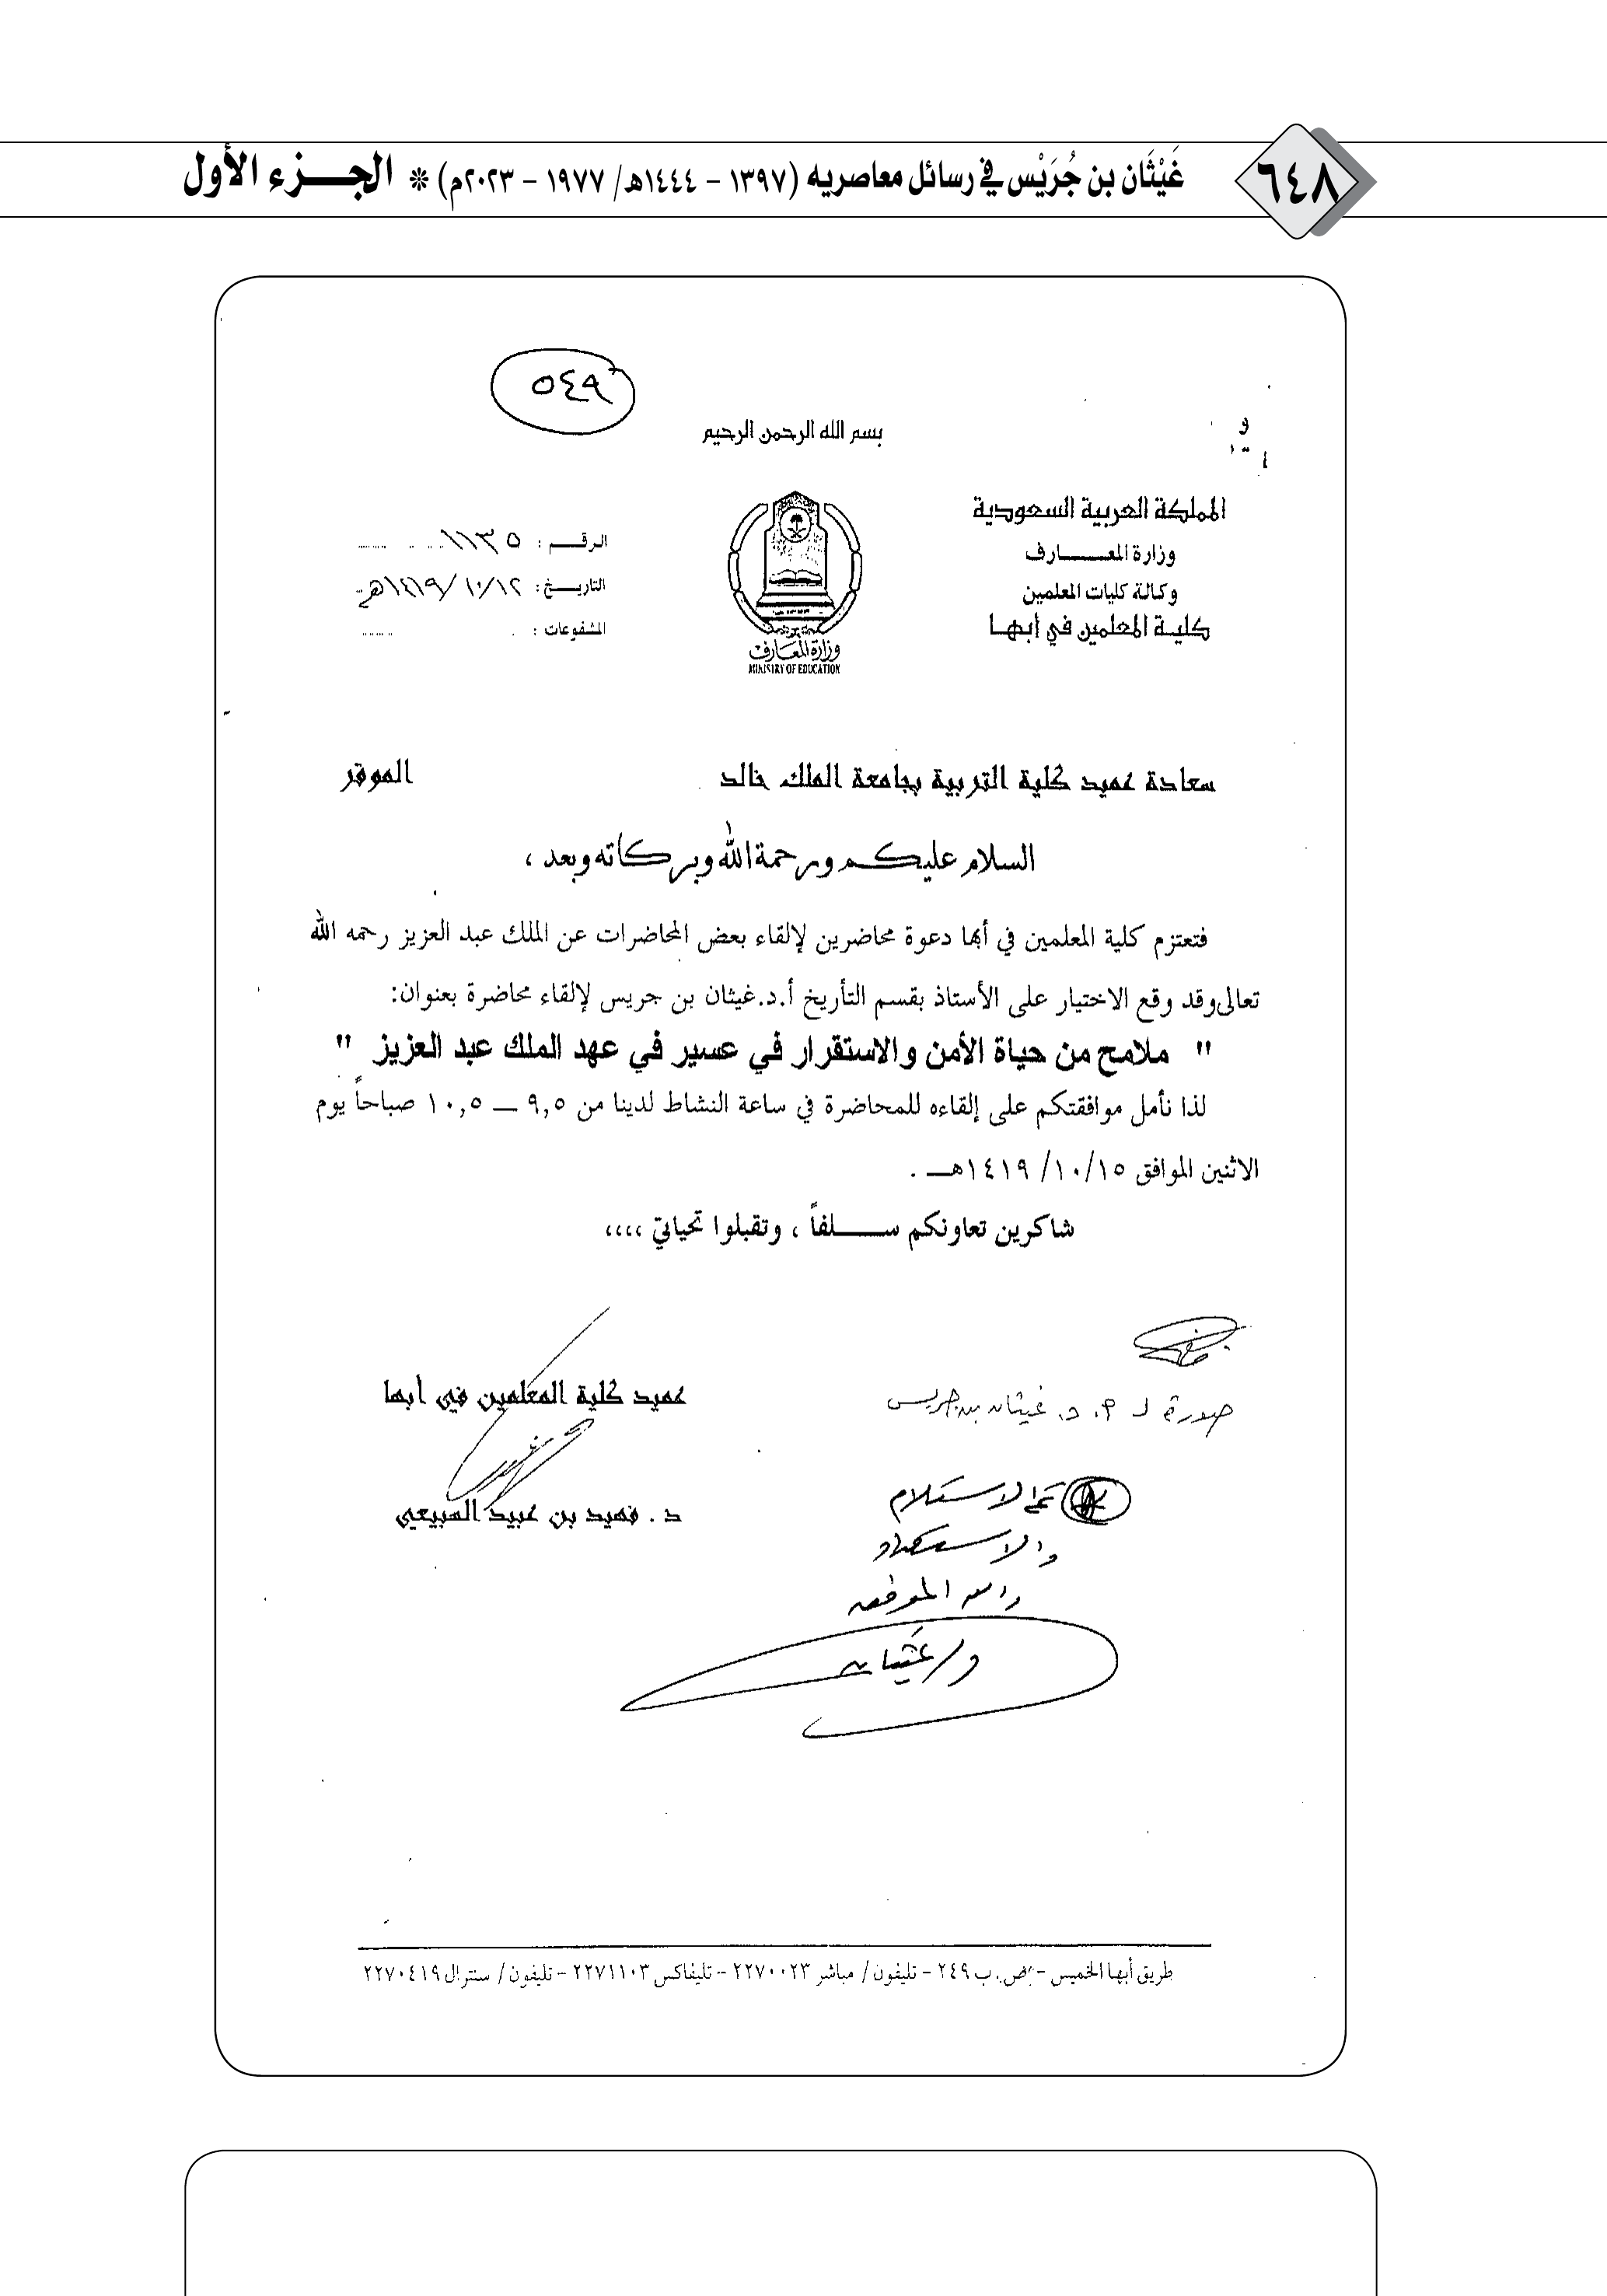 ٦٤٨
غَيْثَان بن جُرَيْس في رسائل معاصريه (١٣٩٧ - ١٤٤٤هـ/ ١٩٧٧ - ٢٠٢٣م) * الجـزء الأول
٥٤٩
بسم الله الرحمن الرحيم
المملكة العربية السعودية
وزارة المعـــارف
وكالة كليات المعلمين
كليـة المعلمين في أبهـا
وزارة المعارف
MINISTRY OF EDUCATION
الرقـــم : ١١٣٥
التاريـــخ : ١٤١٩/١٠/١٢هـ
المشفوعات :
سعادة عميد كلية التربية بجامعة الملك خالد الموقر
السلام عليكم ورحمة الله وبركاته وبعد ،
فتعتزم كلية المعلمين في أبها دعوة محاضرين لإلقاء بعض المحاضرات عن الملك عبد العزيز رحمه الله
تعالى وقد وقع الاختيار على الأستاذ بقسم التأريخ أ.د.غيثان بن جريس لإلقاء محاضرة بعنوان:
" ملامح من حياة الأمن والاستقرار في عسير في عهد الملك عبد العزيز "
لذا نأمل موافقتكم على إلقاءه للمحاضرة في ساعة النشاط لدينا من ٩,٥ ــ ١٠,٥ صباحاً يوم
الاثنين الموافق ١٤١٩/١٠/١٥هــ .
شاكرين تعاونكم ســـلفاً ، وتقبلوا تحياتي ،،،،
عميد كلية المعلمين في أبها
د . فهيد بن عبيد السبيعي
صورة لـ أ. د. غيثان بن جريس
تم الاستلام
والاستعداد
والله الموفق
د/ غيثان
طريق أبها الخميس - ص. ب ٢٤٩ - تليفون/ مباشر ٢٢٧٠٠٢٣ - تليفاكس ٢٢٧١١٠٣ - تليفون/ سنترال ٢٢٧٠٤١٩